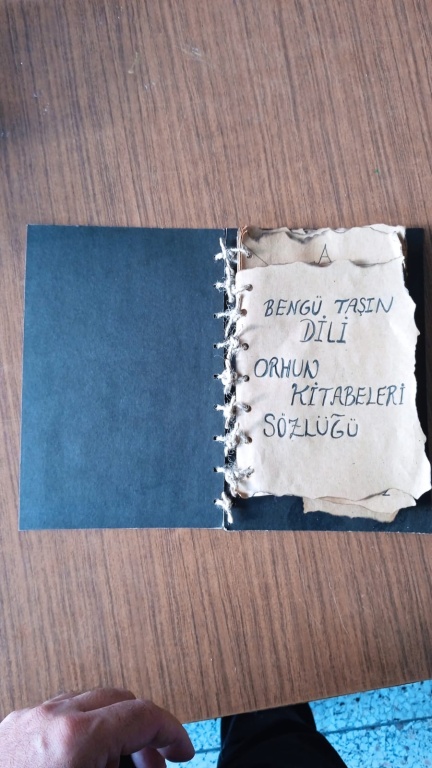 A
BENGÜ TAŞIN
DİLİ
ORHUN
KİTABELERİ
SÖZLÜĞÜ